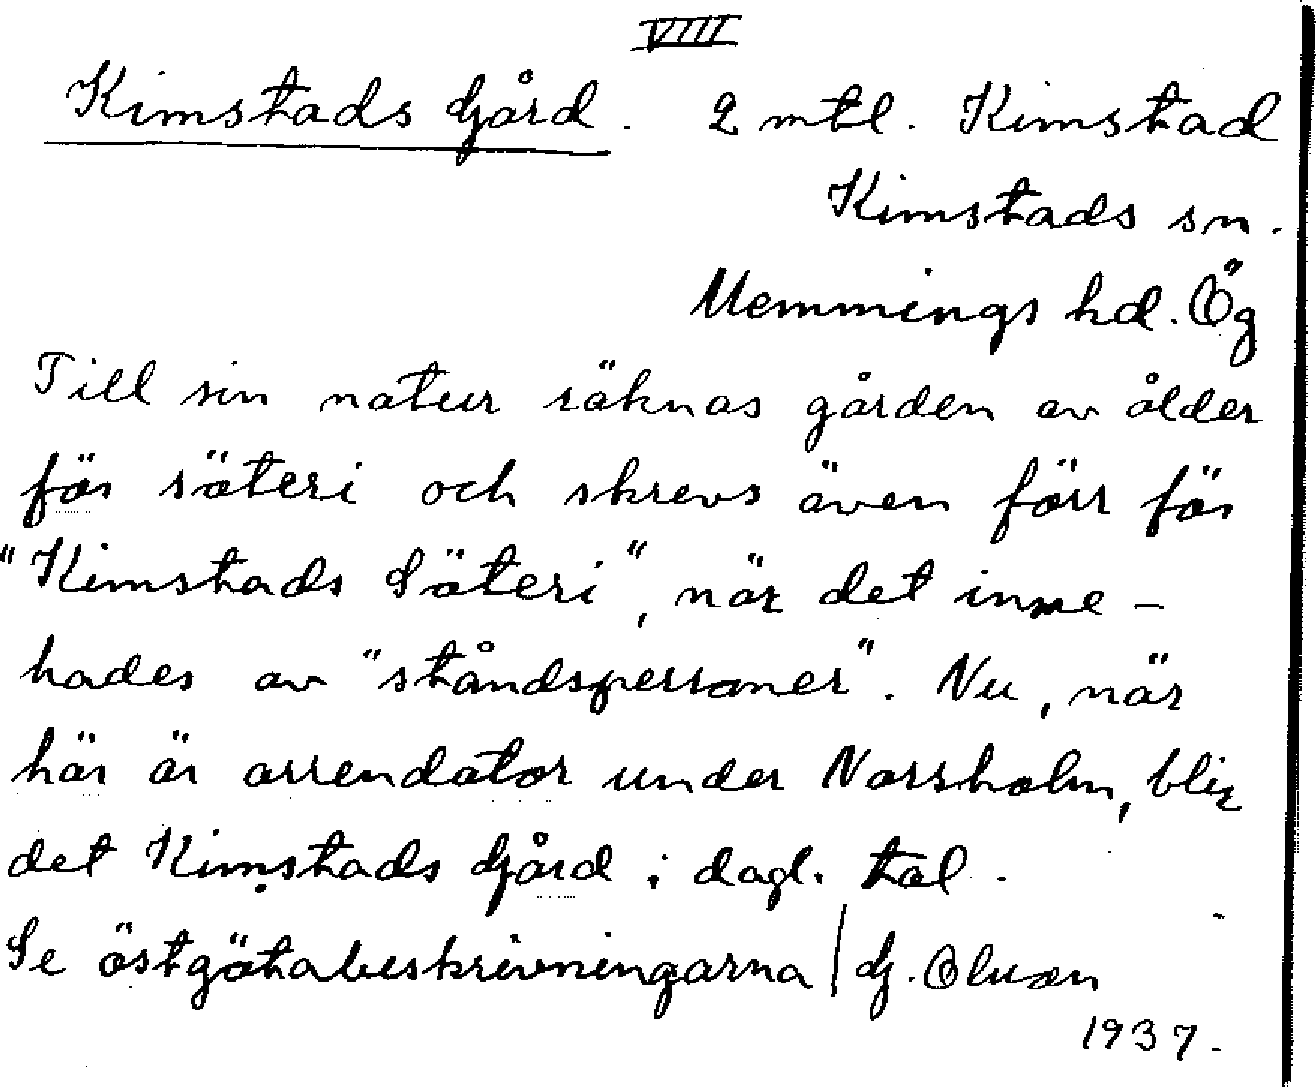 VIII
Kimstads Gård. 2 mtl. Kimstad
Kimstads sn.
Memmings hd. Ög
Till sin natur räknas gården av ålder
för säteri och skrevs även förr för
"Kimstads Säteri", när det inne-
hades av "ståndspersoner". Nu, när
här är arrendator under Norsholm, blir
det Kimstads Gård i dagl. tal.
Se östgötabeskrivningarna / G. Olson
1937.